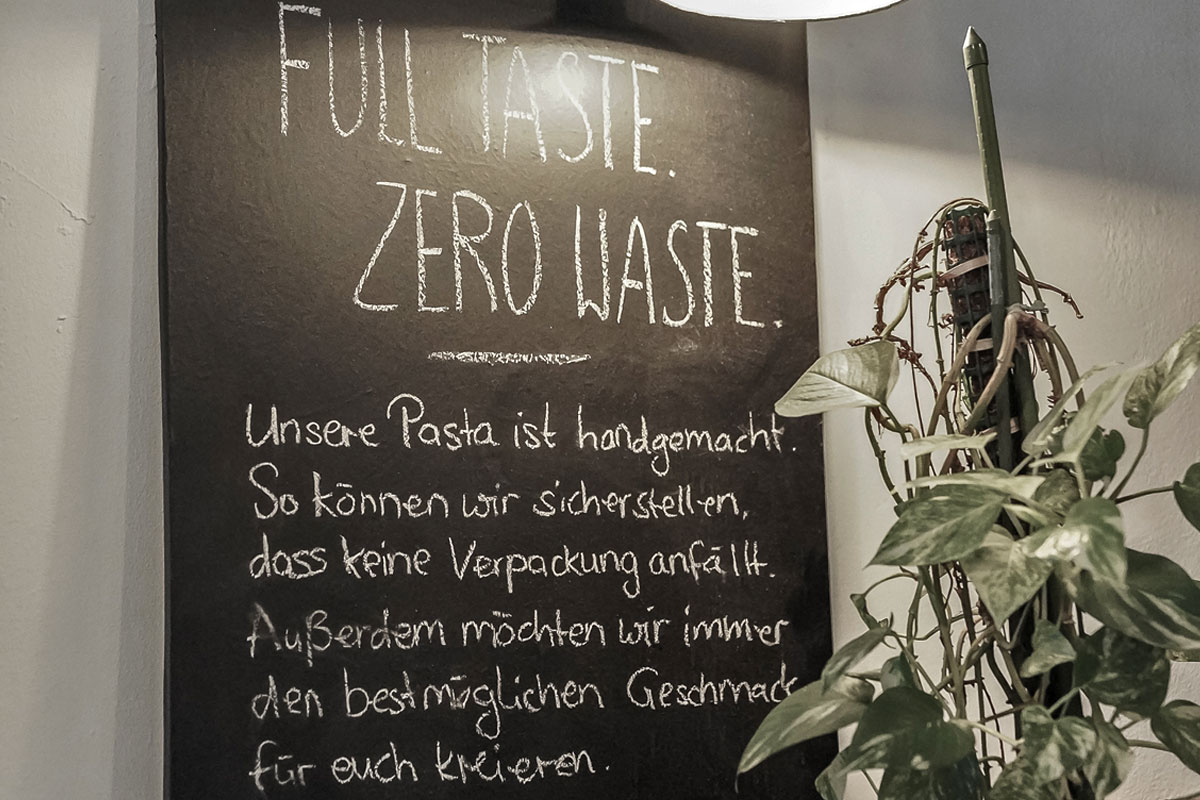 FULL TASTE.
ZERO WASTE.
Unsere Pasta ist handgemacht.
So können wir sicherstellen,
dass keine Verpackung anfällt.
Außerdem möchten wir immer
den bestmöglichen Geschmack
für euch kreieren.